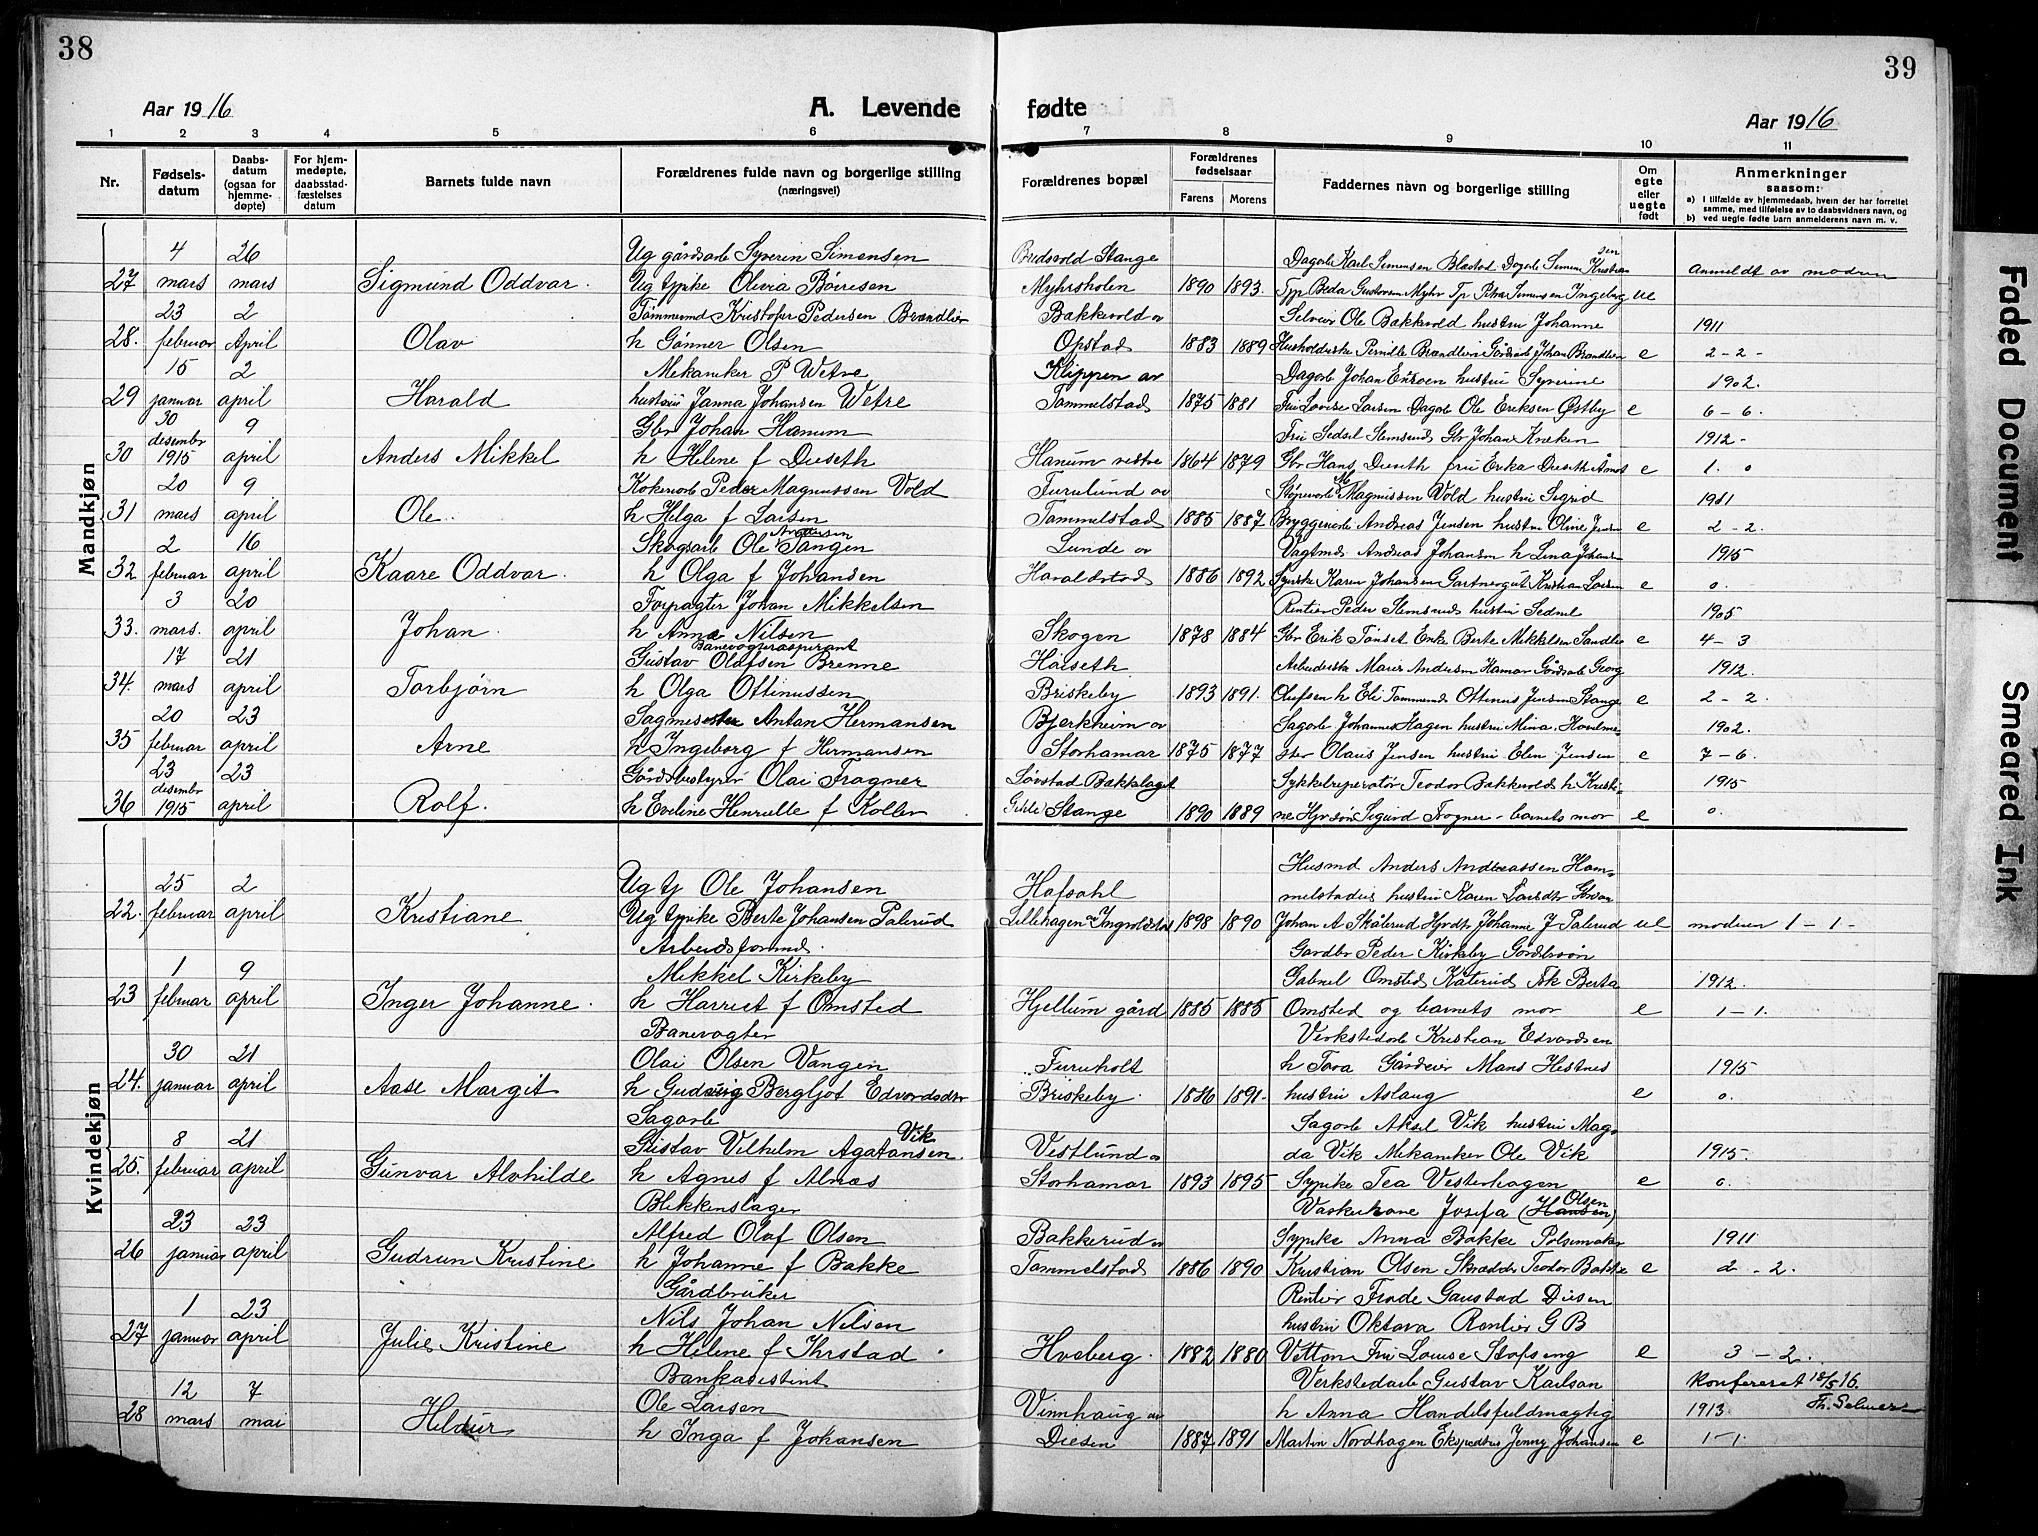 38
39
Aar 1916
A. Levende
fødte
Aar 1916
1 2 3 4 5 6 7 8 9 10 11
Nr.
Fødsels-
datum
Daabs-
datum
(ogsaa for
hjemme-
døpte)
For hjem-
medøpte,
daabsstad-
fæstelses
datum
Barnets fulde navn
Forældrenes fulde navn og borgerlige stilling
(næringsvei)
Forældrenes bopæl
Forældrenes
fødselsaar
Farens Morens
Faddernes navn og borgerlige stilling
Om
egte
eller
uegte
født
Anmerkninger
saasom:
a) I tilfælde av hjemmedaab, hvem der har forrettet
samme, med tilføielse av to daabsvidners navn, og
b) ved uegte fødte barn anmelderens navn m. v.
Mandkjøn
4 26 Ug gårdsarb Syverin Simensen Bredvold Stange Dagarb Karl Simensen Blæstad Dagarb Simen Kristian
sen
27 mars mars Sigmund Oddvar. Ug tjpike Olivia Børresen Myhrsholen 1890 1893. Beda Gustavsen Myhr Tp Petra Simensen Ingeberg ue anmeldt av moderen
23 2 Tømmermd Kristofer Pedersen Brændlien Bakkevold av Selveier Ole Bakkevold hustru Johanne 1911
28. februar April Olav h Gønner Olsen Opstad 1883 1889 Husholderske Pernille Brændlien Gårdsarb Johan Brændlien e 2-2-
15 2 Mekaniker P Wetre Klippen av Dagarb Johan hustru Syverine 1902.
29 januar april Harald hustru Janna Johansen Wetre Tommelstad 1875 1881 Fru Lovise Larsen Dagarb Ole Eriksen Østby e 6-6.
30 9 Gbr Johan Hanum Fru Sedsel Stemsrud Gbr Johan 1912-
30 desembr 1915 april Anders Mikkel h Helene f Dieseth Hanum vestre 1864 1879 Gbr Hans Dieseth fru Erka Dieseth Åmot e 1. 0
20 9 Kokerarb Peder Magnussen Vold Furulund av Støperarb M Magnussen Vold hustru Sigrid 1911
31 mars april Ole. h Helga f Larsen Tommelstad 1885 1887 Bryggeriarb Andreas Jensen hustru Oline Jensen e 2-2.
Andersen
2 16 Skogsarb Ole Tangen Lunde av Vagtmd Andreas Johansen h Lina Johansen 1915
32 februar april Kaare Oddvar. h Olga f Johansen Haraldstad 1886 1892 Karen Johansen Gartnergut Kristian Larsen e 0.
3 20 Forpagter Johan Mikkelsen Rentier Peder Stemsrud hustru Sedsel 1905
33. mars. april Johan. h Anna Nilsen Skogen 1878 1884 Gbr Erik Tønset Enke Berte Mikkelsen Sandlien e 4-3
Banevogteraspirant
17 21 Gustav Olafsen Brenne Høiseth Arbeiderske Marie Andersen Hamar Gårdsarb Georg 1912.
34. mars april Torbjørn h Olga Ottinussen Briskeby 1893 1891. Olufsen h Eli Tømmermd Ottinus Jensen Stange e 2-2.
20 23 Sagmester Antan Hermansen Bjerkheim av Sagarb Johannes Hagen hustru Mina Hovelme- 1902.
35 februar april Arne h Ingeborg f Hermansen Storhamar 1875 1877 ster Olaus Jensen hustru Elen Jensen e 7-6.
23 23 Gårdsbestyrer Olai Frogner Lovstad Bakkelaget Sykkelreperatør Teodor Bakkevold h Kristi- 1915
36 desembr 1915 april Rolf. h Eveline Henriette f Koller Stange 1890 1889 ne Hjvsøn Sigurd Frogner - barnets mor e 0.
Kvindekjøn
25 2 Ug tj Ole Johansen Hafsahl Husmd Anders Andreassen Hom-
22. februar april Kristiane Ug tjpike Berte Johansen Palerud Lillehagen av Ingvoldstad 1898 1890 melstadeie hustru Karen Larsdtr
Johan A Skålerud Hjvdtr Johanne J Palerud ue moderen 1-1-
Arbeidsformd.
1 9 Mikkel Kirkeby Gardbr Peder Kirkeby Gårdbrsøn
Gabriel Omsted Katerud Frk Berta 1912.
23 februar april Inger Johanne. h Harriet f Omsted Hjellum gård 1885 1885 Omsted og barnets mor e 1-1.
Banevogter Verkstedarb Kristian Edvardsen
30 21 Olai Olsen Vangen Furuholt h Tora Gårdeier Mans Hestnes 1915
24. januar april Aase Margit h Gudveig Bergljot Edvardsdtr Briskeby. 1886 1891- hustru Aslaug e 0.
Sagarb Sagarb Aksel Vik hustru Mag-
8 21 Gustav Vilhelm Agatonsen. Vik Vestlund av da Vik Mekaniker Ole Vik 1915.
25. februar april Gunvar Alvhilde h Agnes f Alnæs Storhamar 1893 1895 Sypike Tea Vesterhagen e 0.
Blikkenslager Vaskerkone Josefa (Hansen) Olsen
23 23 Alfred Olaf Olsen Bakkerud av Sypike Anna Bakke Pølsemaker 1911
26 januar april Gudrun Kristine h Johanne f Bakke Tommelstad 1886 1890 Kristian Olsen Skrædder Teodor Bakke e 2-2.
Gårdbruker Rentier Frode Gaustad Diesen
1 23 Nils Johan Nilsen hustru Oktava Rentier G B
27 januar april Julie Kristine h Helene f Ihrstad Hveberg. 1882 1880 Vetton Fru Louise Stafseng e 3-2.
Bankasistent Verkstedarb Gustav Karlsen Konfereret 18/5 16.
12 7 Ole Larsen Vinnhaug av h Anna Handelsfuldmægtig 1913. Th.
28 mars mai Hildur h Inga f Johansen Diesen 1887 1891 Martin Nordhagen Ekspedtris Jenny Johansen e 1-1.
Faded Document
Smeared Ink